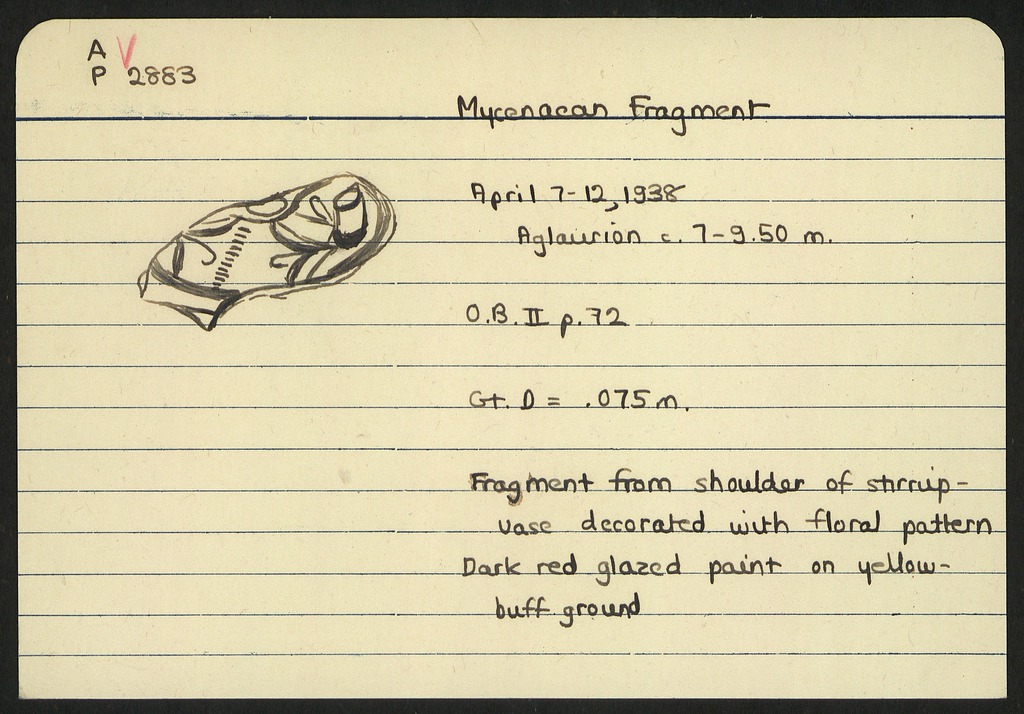 A
P 2883
Mycenaean Fragment
April 7-12, 1938
Aglaurion c. 7-9.50 m.
O.B. II p. 72
Gt. D = .075 m.
Fragment from shoulder of stirrup-
vase decorated with floral pattern
Dark red glazed paint on yellow-
buff ground